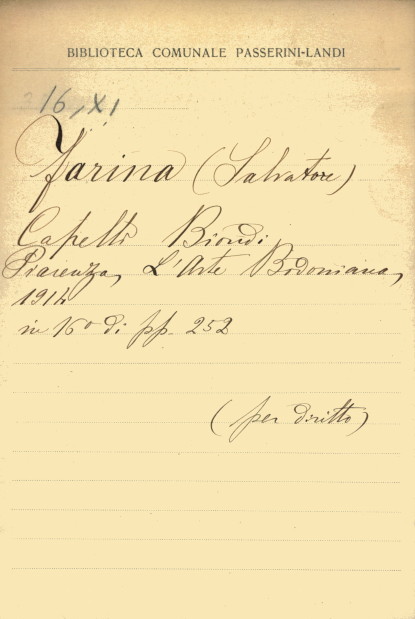 BIBLIOTECA COMUNALE PASSERINI-LANDI
16, XI
Farina (Salvatore)
Capelli Biondi
Piacenza, L'Arte Bodoniana,
1914
in 16º di pp. 252
(per diritto)